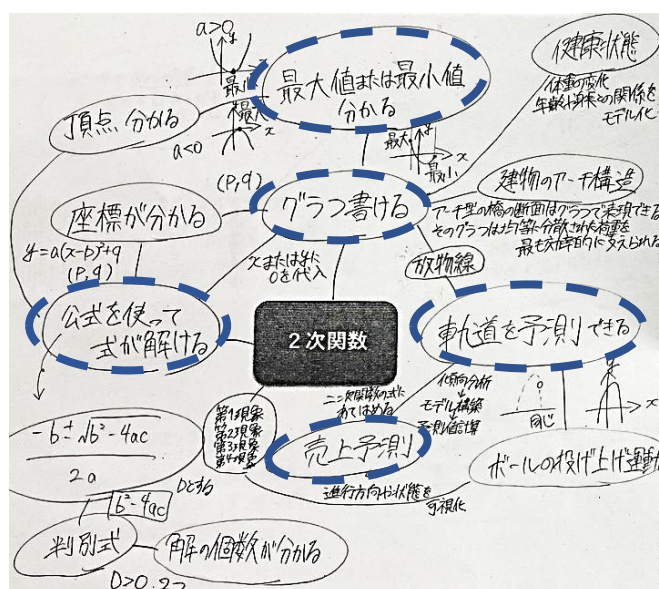 a>0
最小
最大
a<0
最大値または最小値
分かる
健康状態
体重の変化
年齢や
との関係を
モデル化
頂点 分かる
最大
x
最小
(P, q)
グラフ書ける
建物のアーチ構造
アーチ型の橋の断面はグラフで表現できる
そのグラフは均等に分散される荷重を
最も効率的に支えられる
座標が分かる
y=a(x-p)²+q
(P, q)
xまたはyに
0を代入
放物線
公式を使って
式が解ける
2次関数
軌道を予測できる
二次関数の式に
あてはめる
傾向分析
モデル構築
予測値計算
同じ
x
第1象限
第2象限
第3象限
第4象限
売上予測
ボールの投げ上げ運動
進行方向や状態を
可視化
-b±√b²-4ac
2a
Dとする
b²-4ac
判別式
解の個数が分かる